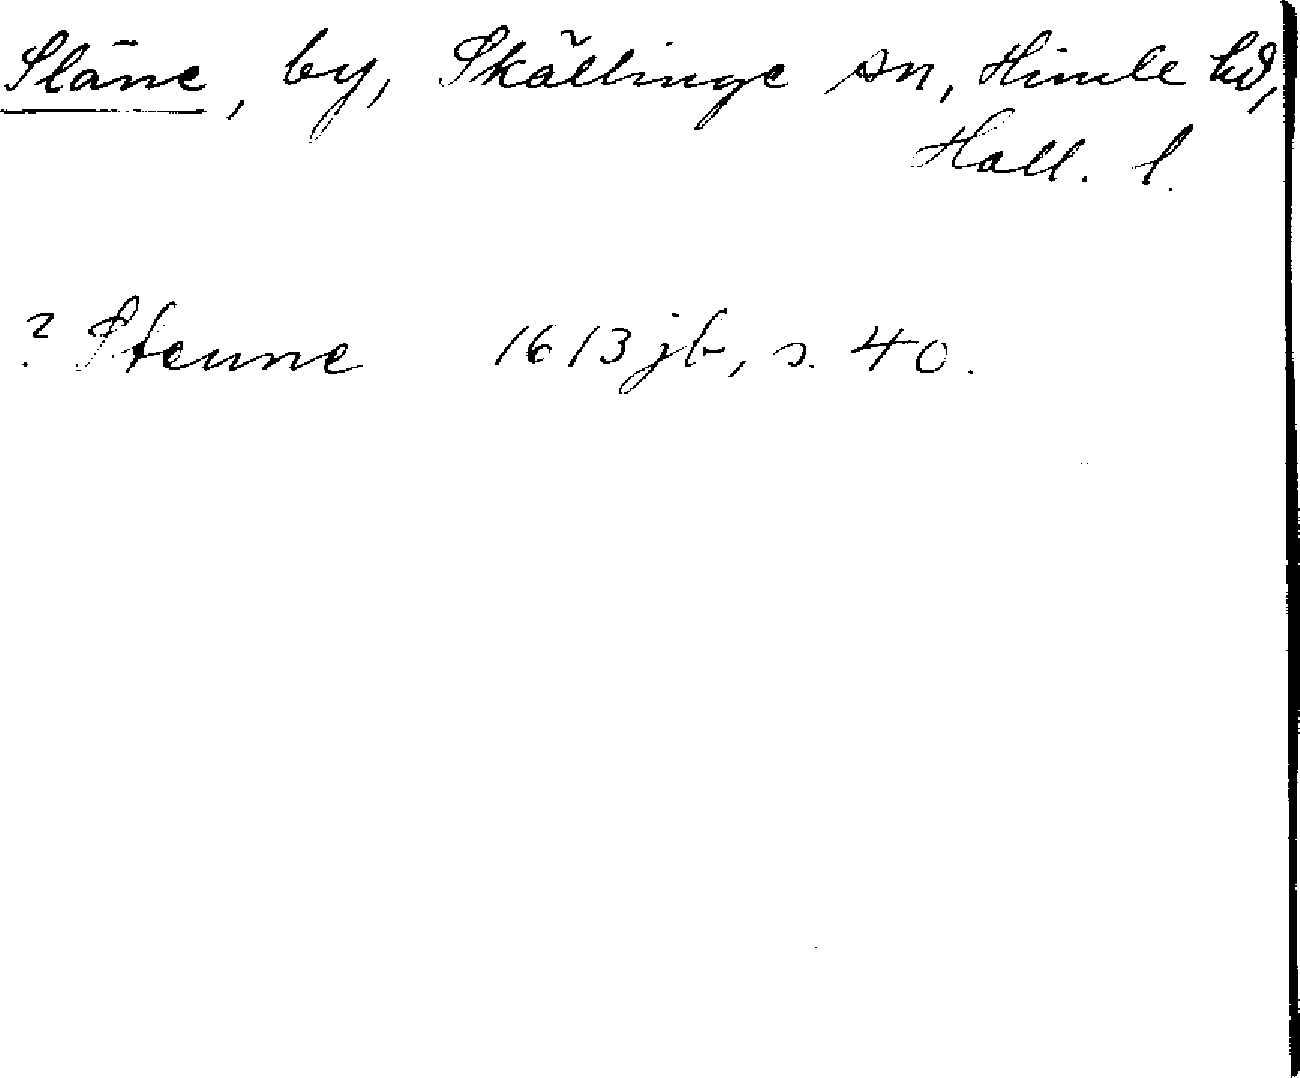 Släne, by, Skällinge sn, Himle hd,
Hall. l.
? Stenne 1613 jb, s. 40.